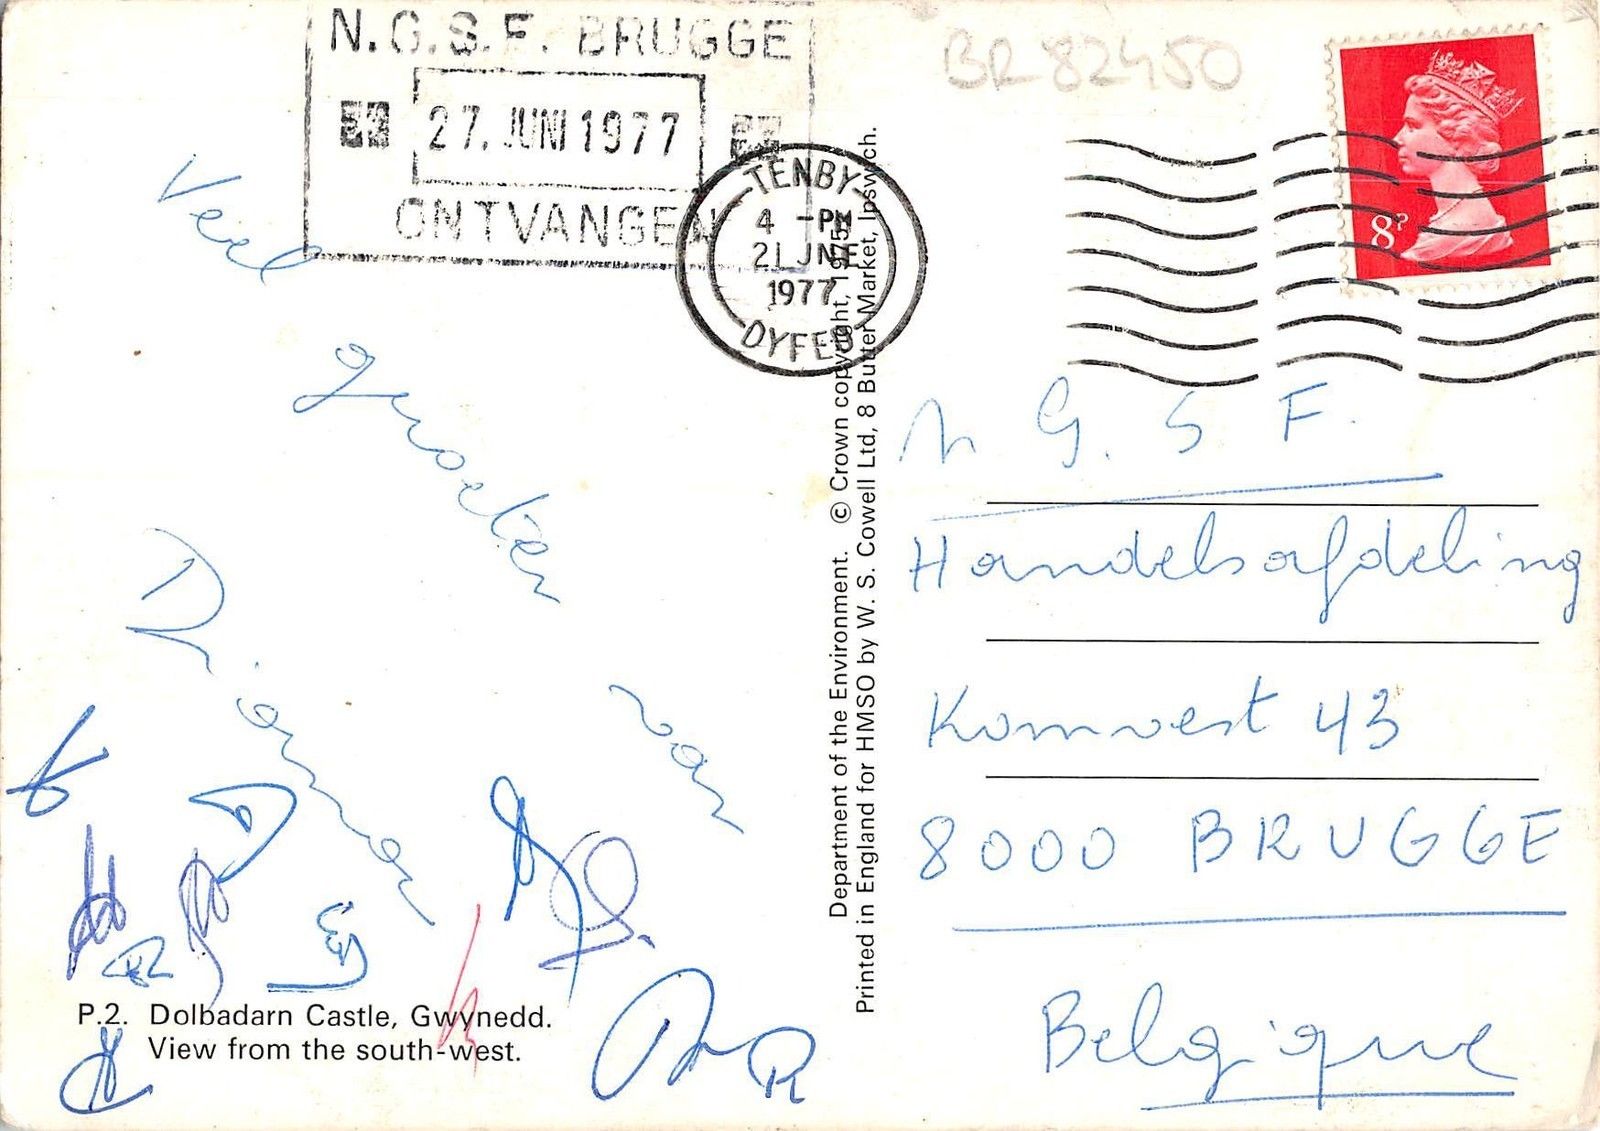 N.G.S.F. BRUGGE
27. JUNI 1977
ONTVANGEN
BR 82450
TENBY
4 - PM
21 JNE
1977
DYFED
8P
Veel
groeten
van
N G. S F.
Handelsafdeling
Komvest 43
8000 BRUGGE
Belgique
P.2. Dolbadarn Castle, Gwynedd.
View from the south-west.
Department of the Environment. © Crown copyright, 1975.
Printed in England for HMSO by W. S. Cowell Ltd, 8 Butter Market, Ipswich.